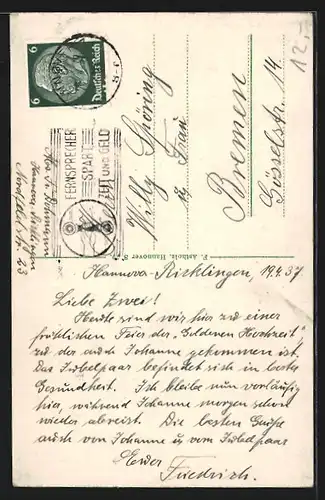 12.-
6
Deutsches Reich
6
FERNSPRECHER
SPART
ZEIT UND GELD
Willy Thöring
u. Frau
Bremen
Gösselstr. 14
23
F. Astholz, Hannover
Hannover-Ricklingen, 19.4.37
Liebe Zwei!
Heute sind wir hier zu einer
fröhlichen Feier der „Goldenen Hochzeit"
zu der auch Johanne gekommen ist.
Das Jubelpaar befindet sich in bester
Gesundheit. Ich bleibe nun vorläufig
hier, während Johanne morgen schon
wieder abreist. Die besten Grüße
auch von Johanne u. vom Jubelpaar
Euer
Friedrich.